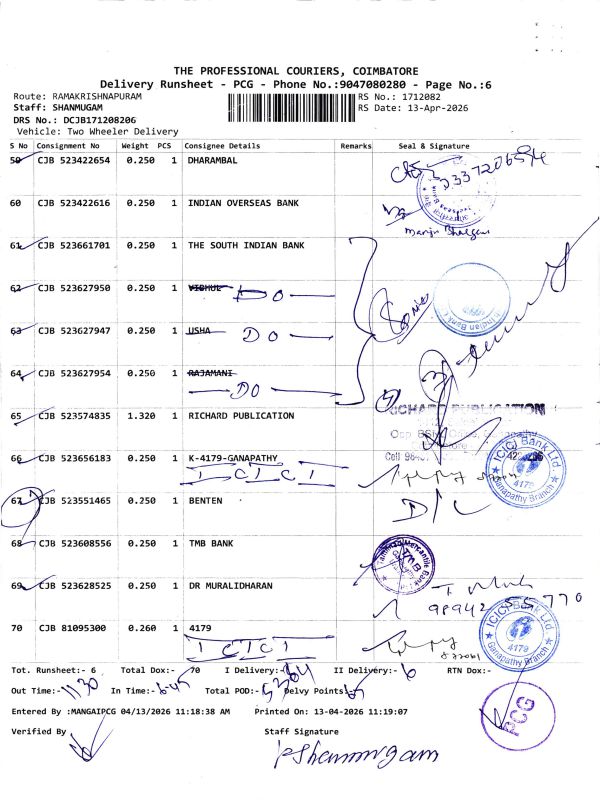 THE PROFESSIONAL COURIERS, COIMBATORE
Delivery Runsheet - PCG - Phone No.:9047080280 - Page No.:6
Route: RAMAKRISHNAPURAM RS No.: 1712082
Staff: SHANMUGAM RS Date: 13-Apr-2026
DRS No.: DCJB171208206
Vehicle: Two Wheeler Delivery
S No Consignment No Weight PCS Consignee Details Remarks Seal & Signature
59 CJB 523422654 0.250 1 DHARAMBAL
60 CJB 523422616 0.250 1 INDIAN OVERSEAS BANK
61 CJB 523661701 0.250 1 THE SOUTH INDIAN BANK
62 CJB 523627950 0.250 1 VIGHUL DO
Indian Bank
63 CJB 523627947 0.250 1 USHA DO
64 CJB 523627954 0.250 1 RAJAMANI
DO
65 CJB 523574835 1.320 1 RICHARD PUBLICATION RICHARD PUBLICATION
66 CJB 523656183 0.250 1 K-4179-GANAPATHY
ICICI
ICICI Bank Ltd 4179 Ganapathy Branch
67 CJB 523551465 0.250 1 BENTEN D/C
68 CJB 523608556 0.250 1 TMB BANK
Tamilnad Mercantile Bank TMB
69 CJB 523628525 0.250 1 DR MURALIDHARAN
98942 55770
70 CJB 81095300 0.260 1 4179
ICICI
ICICI Bank Ltd 4179 Ganapathy Branch
Tot. Runsheet:- 6 Total Dox:- 70 I Delivery:- 64 II Delivery:- 6 RTN Dox:-
Out Time:- 11 30 In Time:- 6-45 Total POD:- Delvy Points:-
Entered By :MANGAIPCG 04/13/2026 11:18:38 AM Printed On: 13-04-2026 11:19:07
PCG
Verified By Staff Signature
P Shanmugam